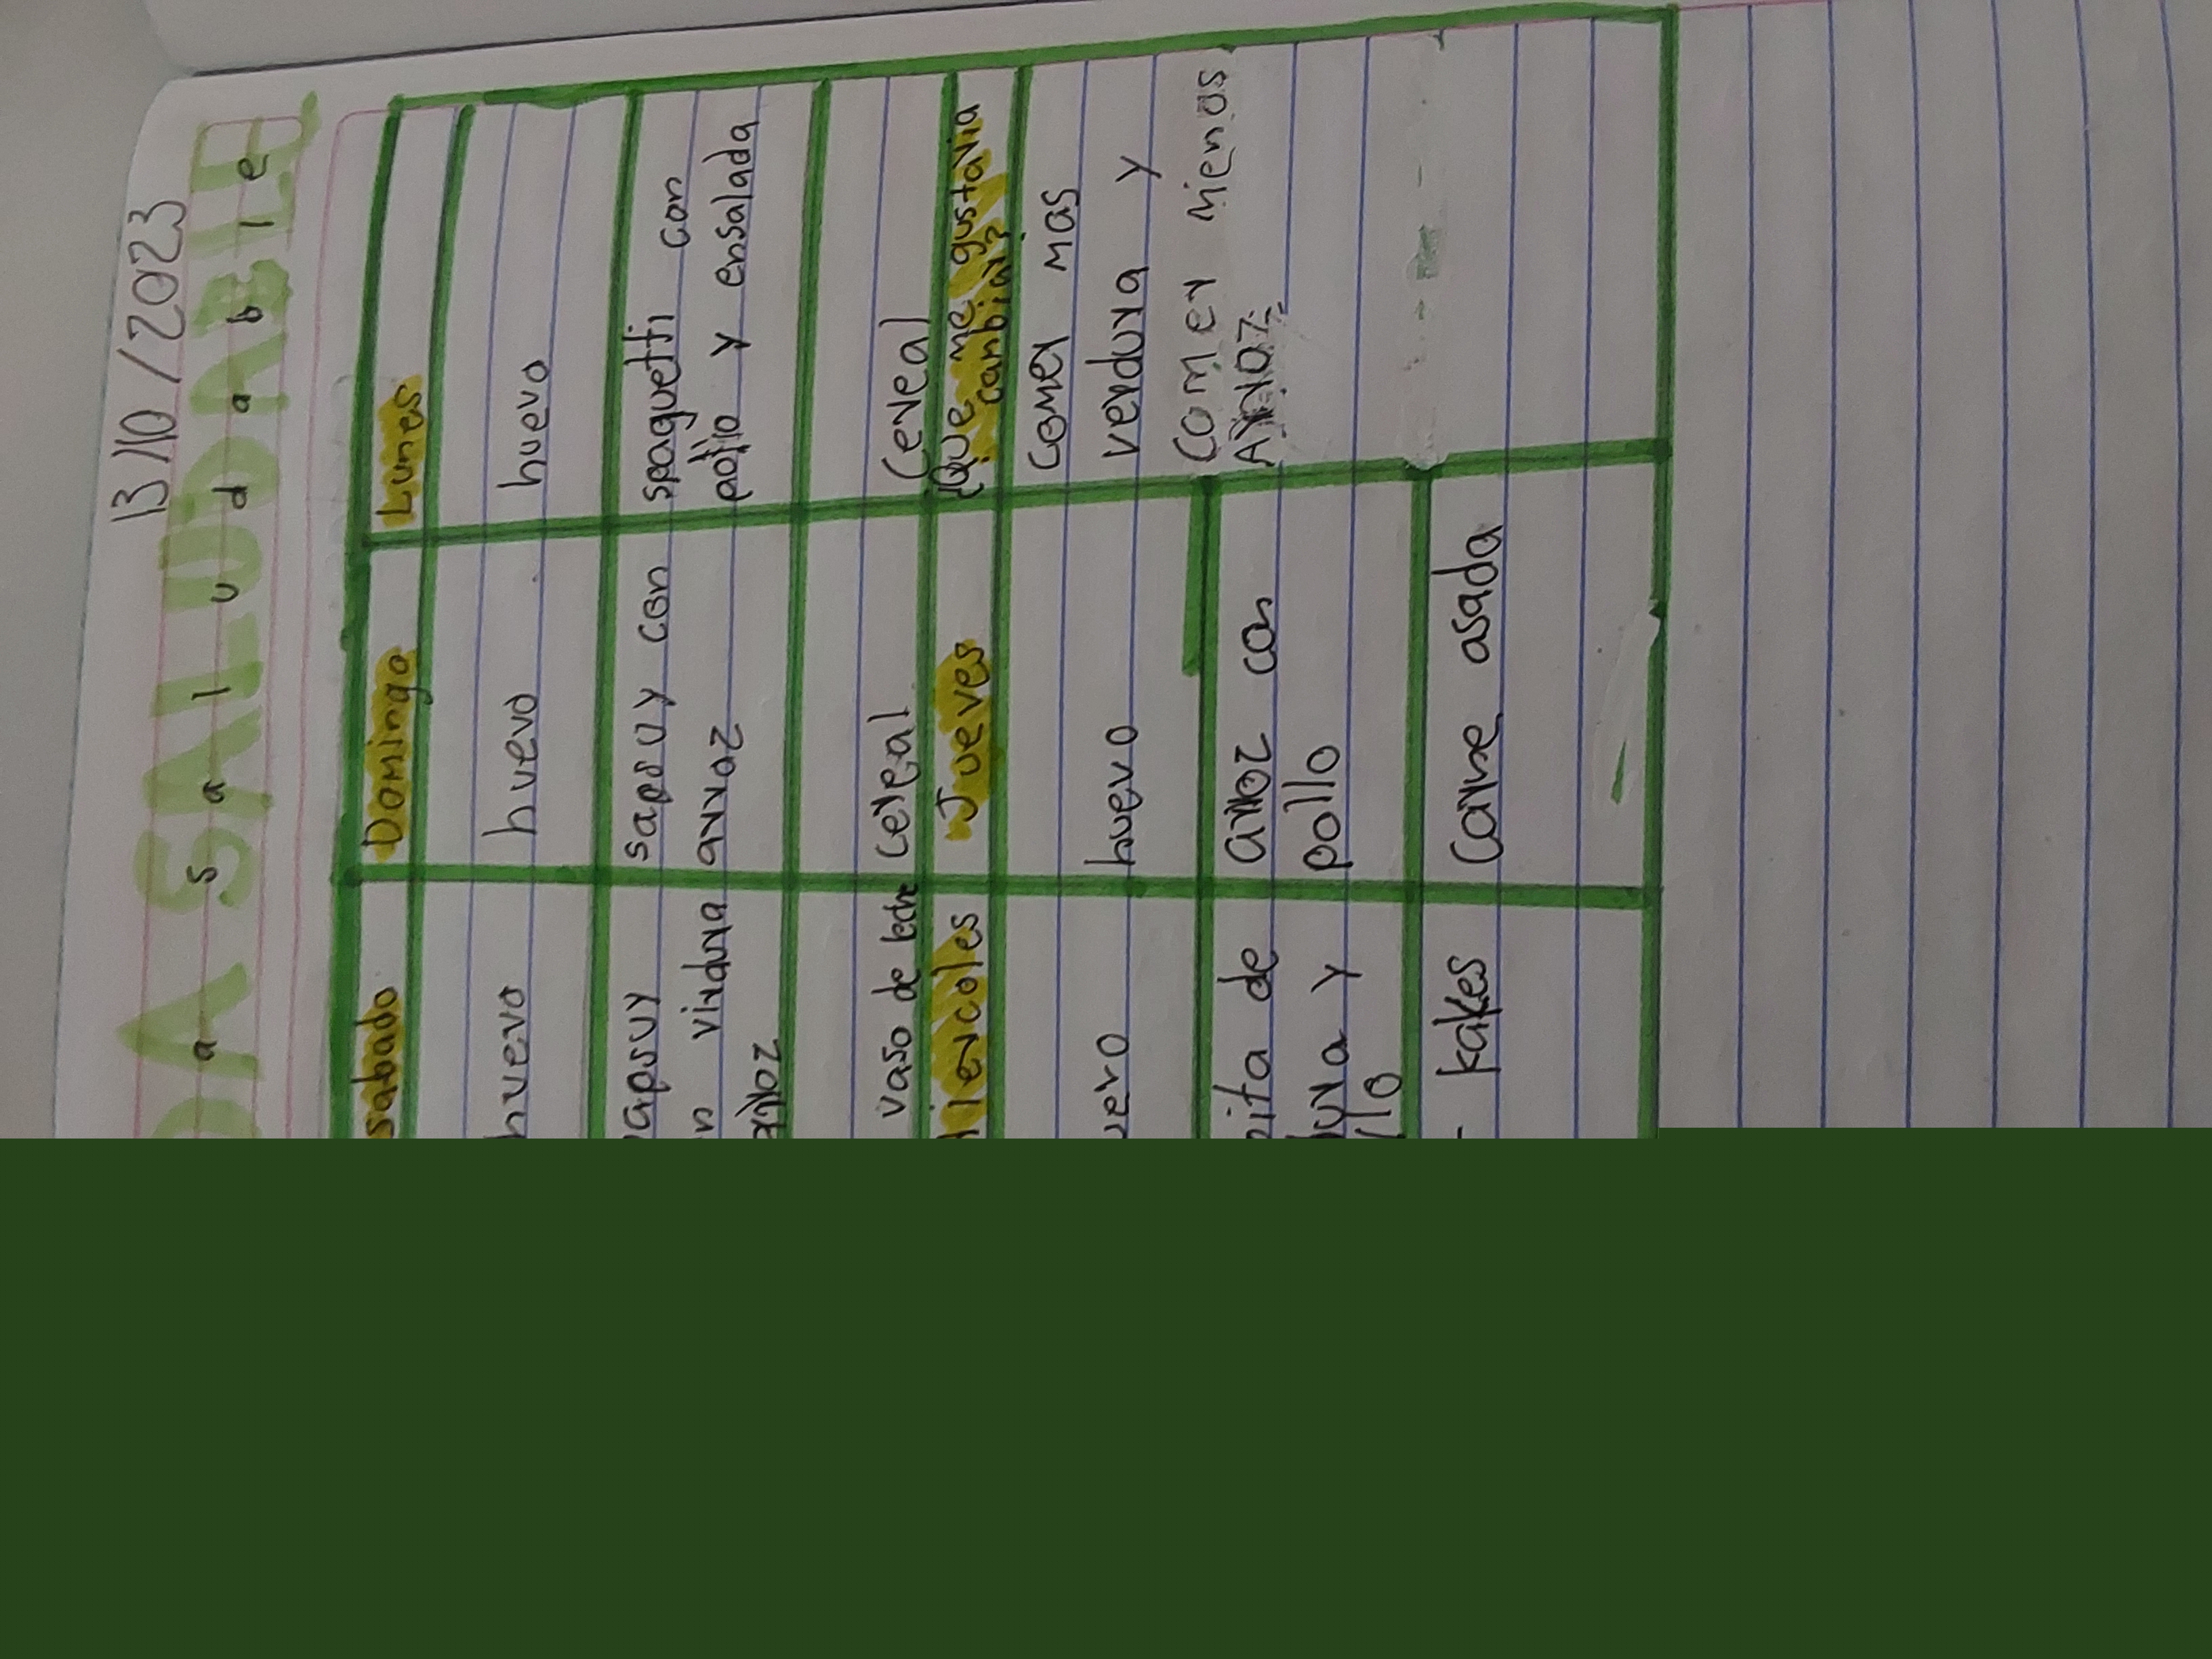 13/10/2023
DA SALUDABLE
a saludable
sabado Domingo Lunes
huevo huevo huevo
apsuy sapsuy con spaguetti con
n virdura arroz pollo y ensalada
arroz
vaso de leche cereal Cereal
iercoles Jueves ¿Que me gustaria
canbiar?
huevo Comer mas
verdura y
Comer menos
pita de arroz con Arroz
ura y pollo
llo
kakes Carne asada